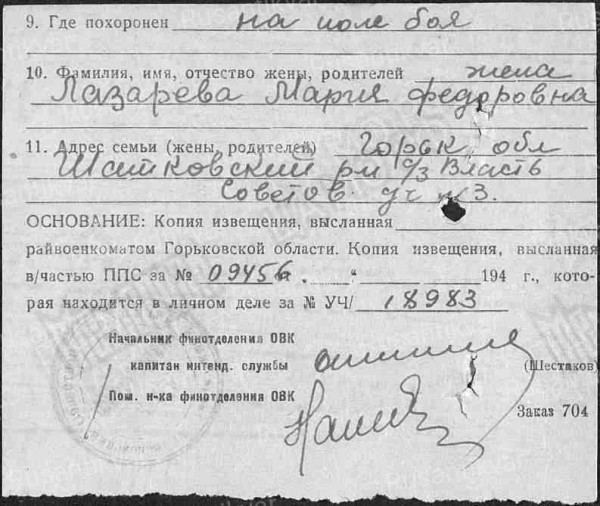 9. Где похоронен на поле боя
10. Фамилия, имя, отчество жены, родителей жена
Лазарева Мария Федоровна
11. Адрес семьи (жены, родителей) Горьк. обл
Шатковский рн с/з Власть
Советов уч №3.
ОСНОВАНИЕ: Копия извещения, высланная
райвоенкоматом Горьковской области. Копия извещения, высланная
в/частью ППС за № 09456 . „ “ 194 г., кото-
рая находится в личном деле за № УЧ/ 18983
Начальник финотделения ОВК
капитан интенд. службы (Шестаков)
Пом. н-ка финотделения ОВК
Заказ 704